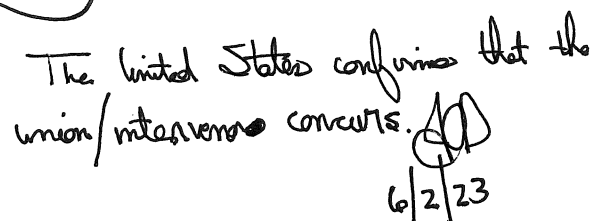 The United States confirms that the
union/intervenor concurs.
6/2/23